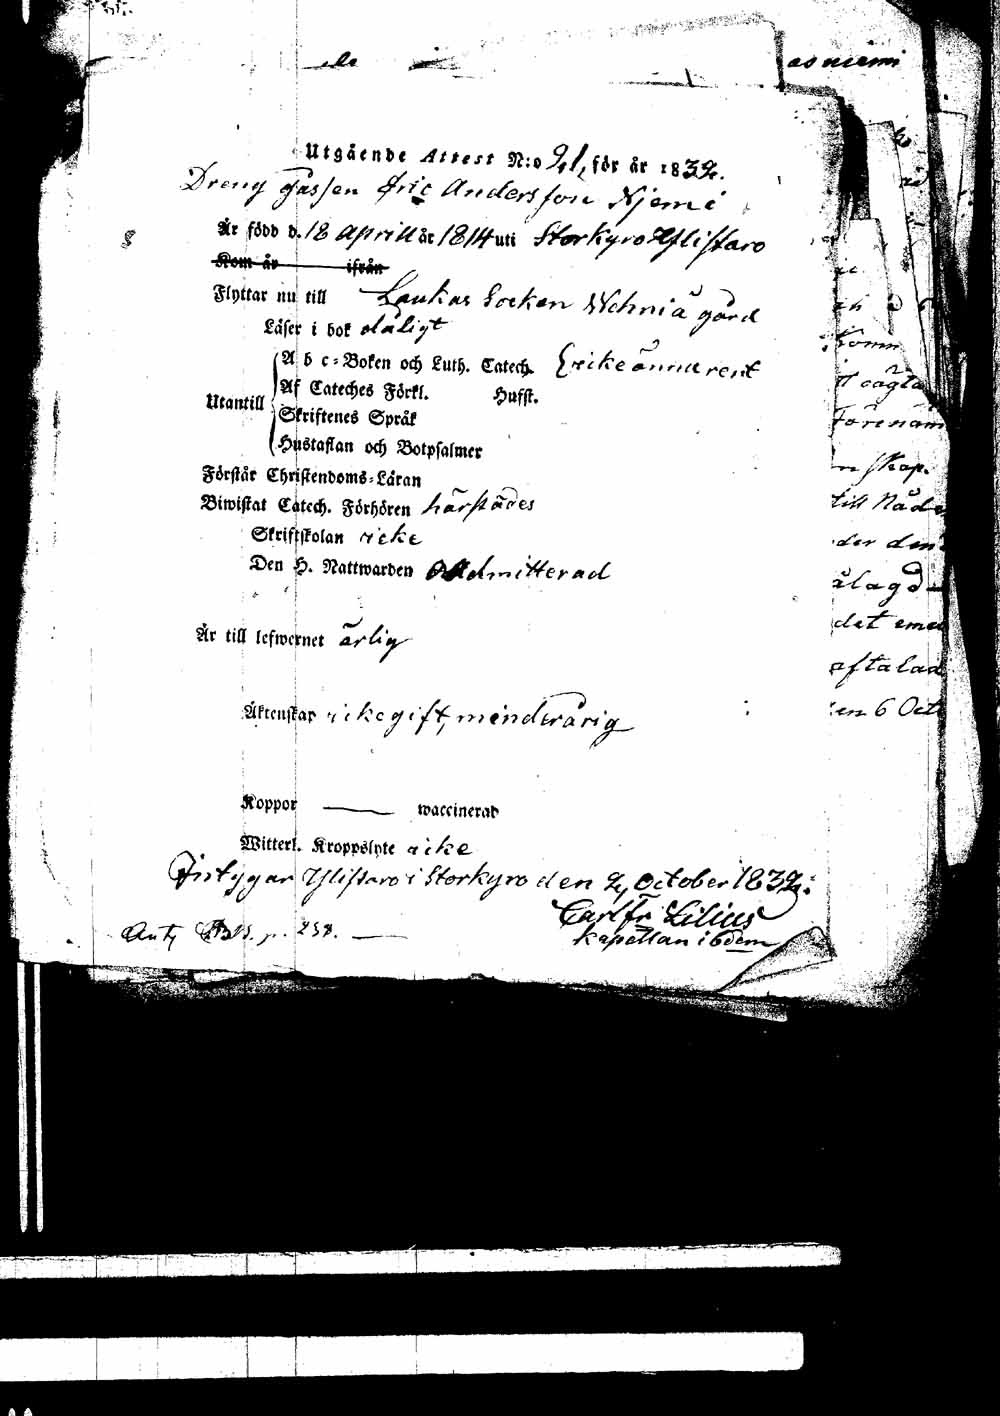 as niemi
Utgående Attest N:o 21, för år 1832.
Dreng Gåssen Eric Andersson Njemi
Är född d. 18 Aprill år 1814 uti Storkyro Ylistaro
Kom år ifrån
Flyttar nu till Laukas Socken Wehniä gård
Läser i bok dåligt
Utantill
A b c-Boken och Luth. Catech. icke ännu rent
Af Cateches Förkl. Husst.
Skriftenes Språk
Hustaflan och Botpsalmer
Förstår Christendoms-Läran
Biwistat Catech. Förhören härstädes
Skriftskolan icke
Den H. Nattwarden Admitterad
Är till lefwernet ärlig
Äktenskap icke gift, minderårig
Koppor — waccinerad
Witterl. Kroppslyte icke
Intygar Ylistaro i Storkyro den 2 October 1832.
Carl Fr Lilius
kapellan ibdem
p. 258.
Komm
Förenäm
skap.
till Nåde
der den
ålagd
det eme
aftalad
en 6 Oct